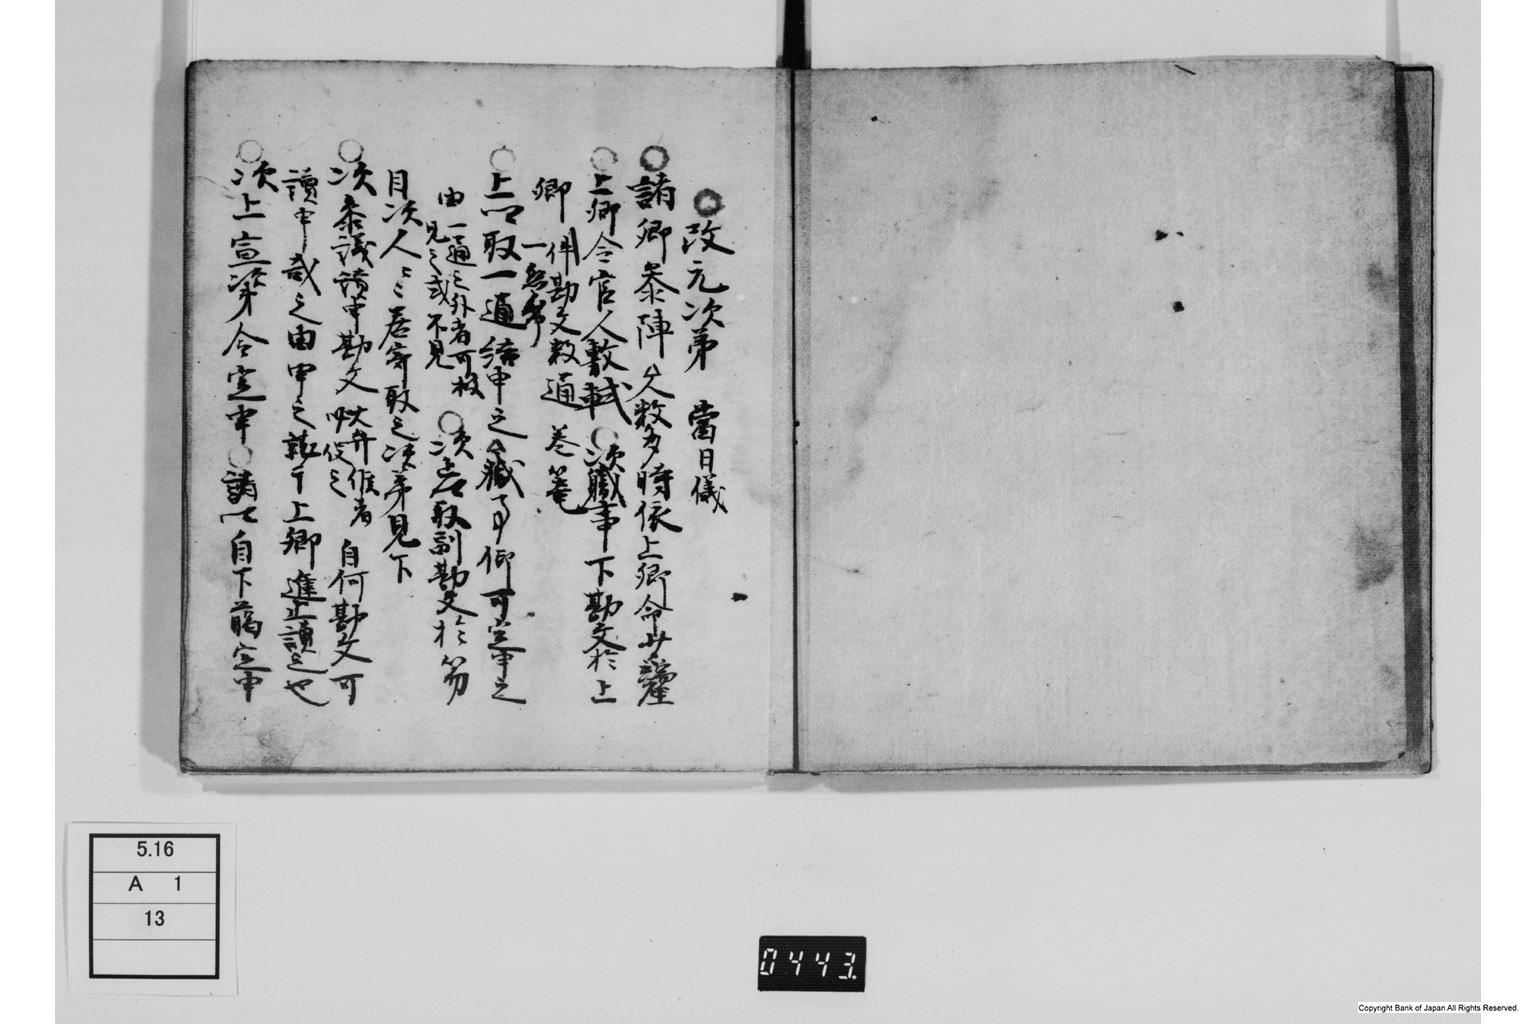 改元次第 當日儀
諸卿参陣 人数多時依上卿命
上卿令官人敷軾 次職事下勘文於上
卿 件勘文数通 巻籠
一
上卿取一通 結申之 職事仰可定申之
由 一通之外者可
見之或不見 次上卿取副勘文於笏
目次人々 居寄取之 次第見下
次参議読申勘文 大弁候者 自何勘文可
讀申哉之由申之 上卿進止讀之也
次上宣次第令定申 諸卿自下﨟定申
5.16
A 1
13
0443
Copyright Bank of Japan All Rights Reserved.